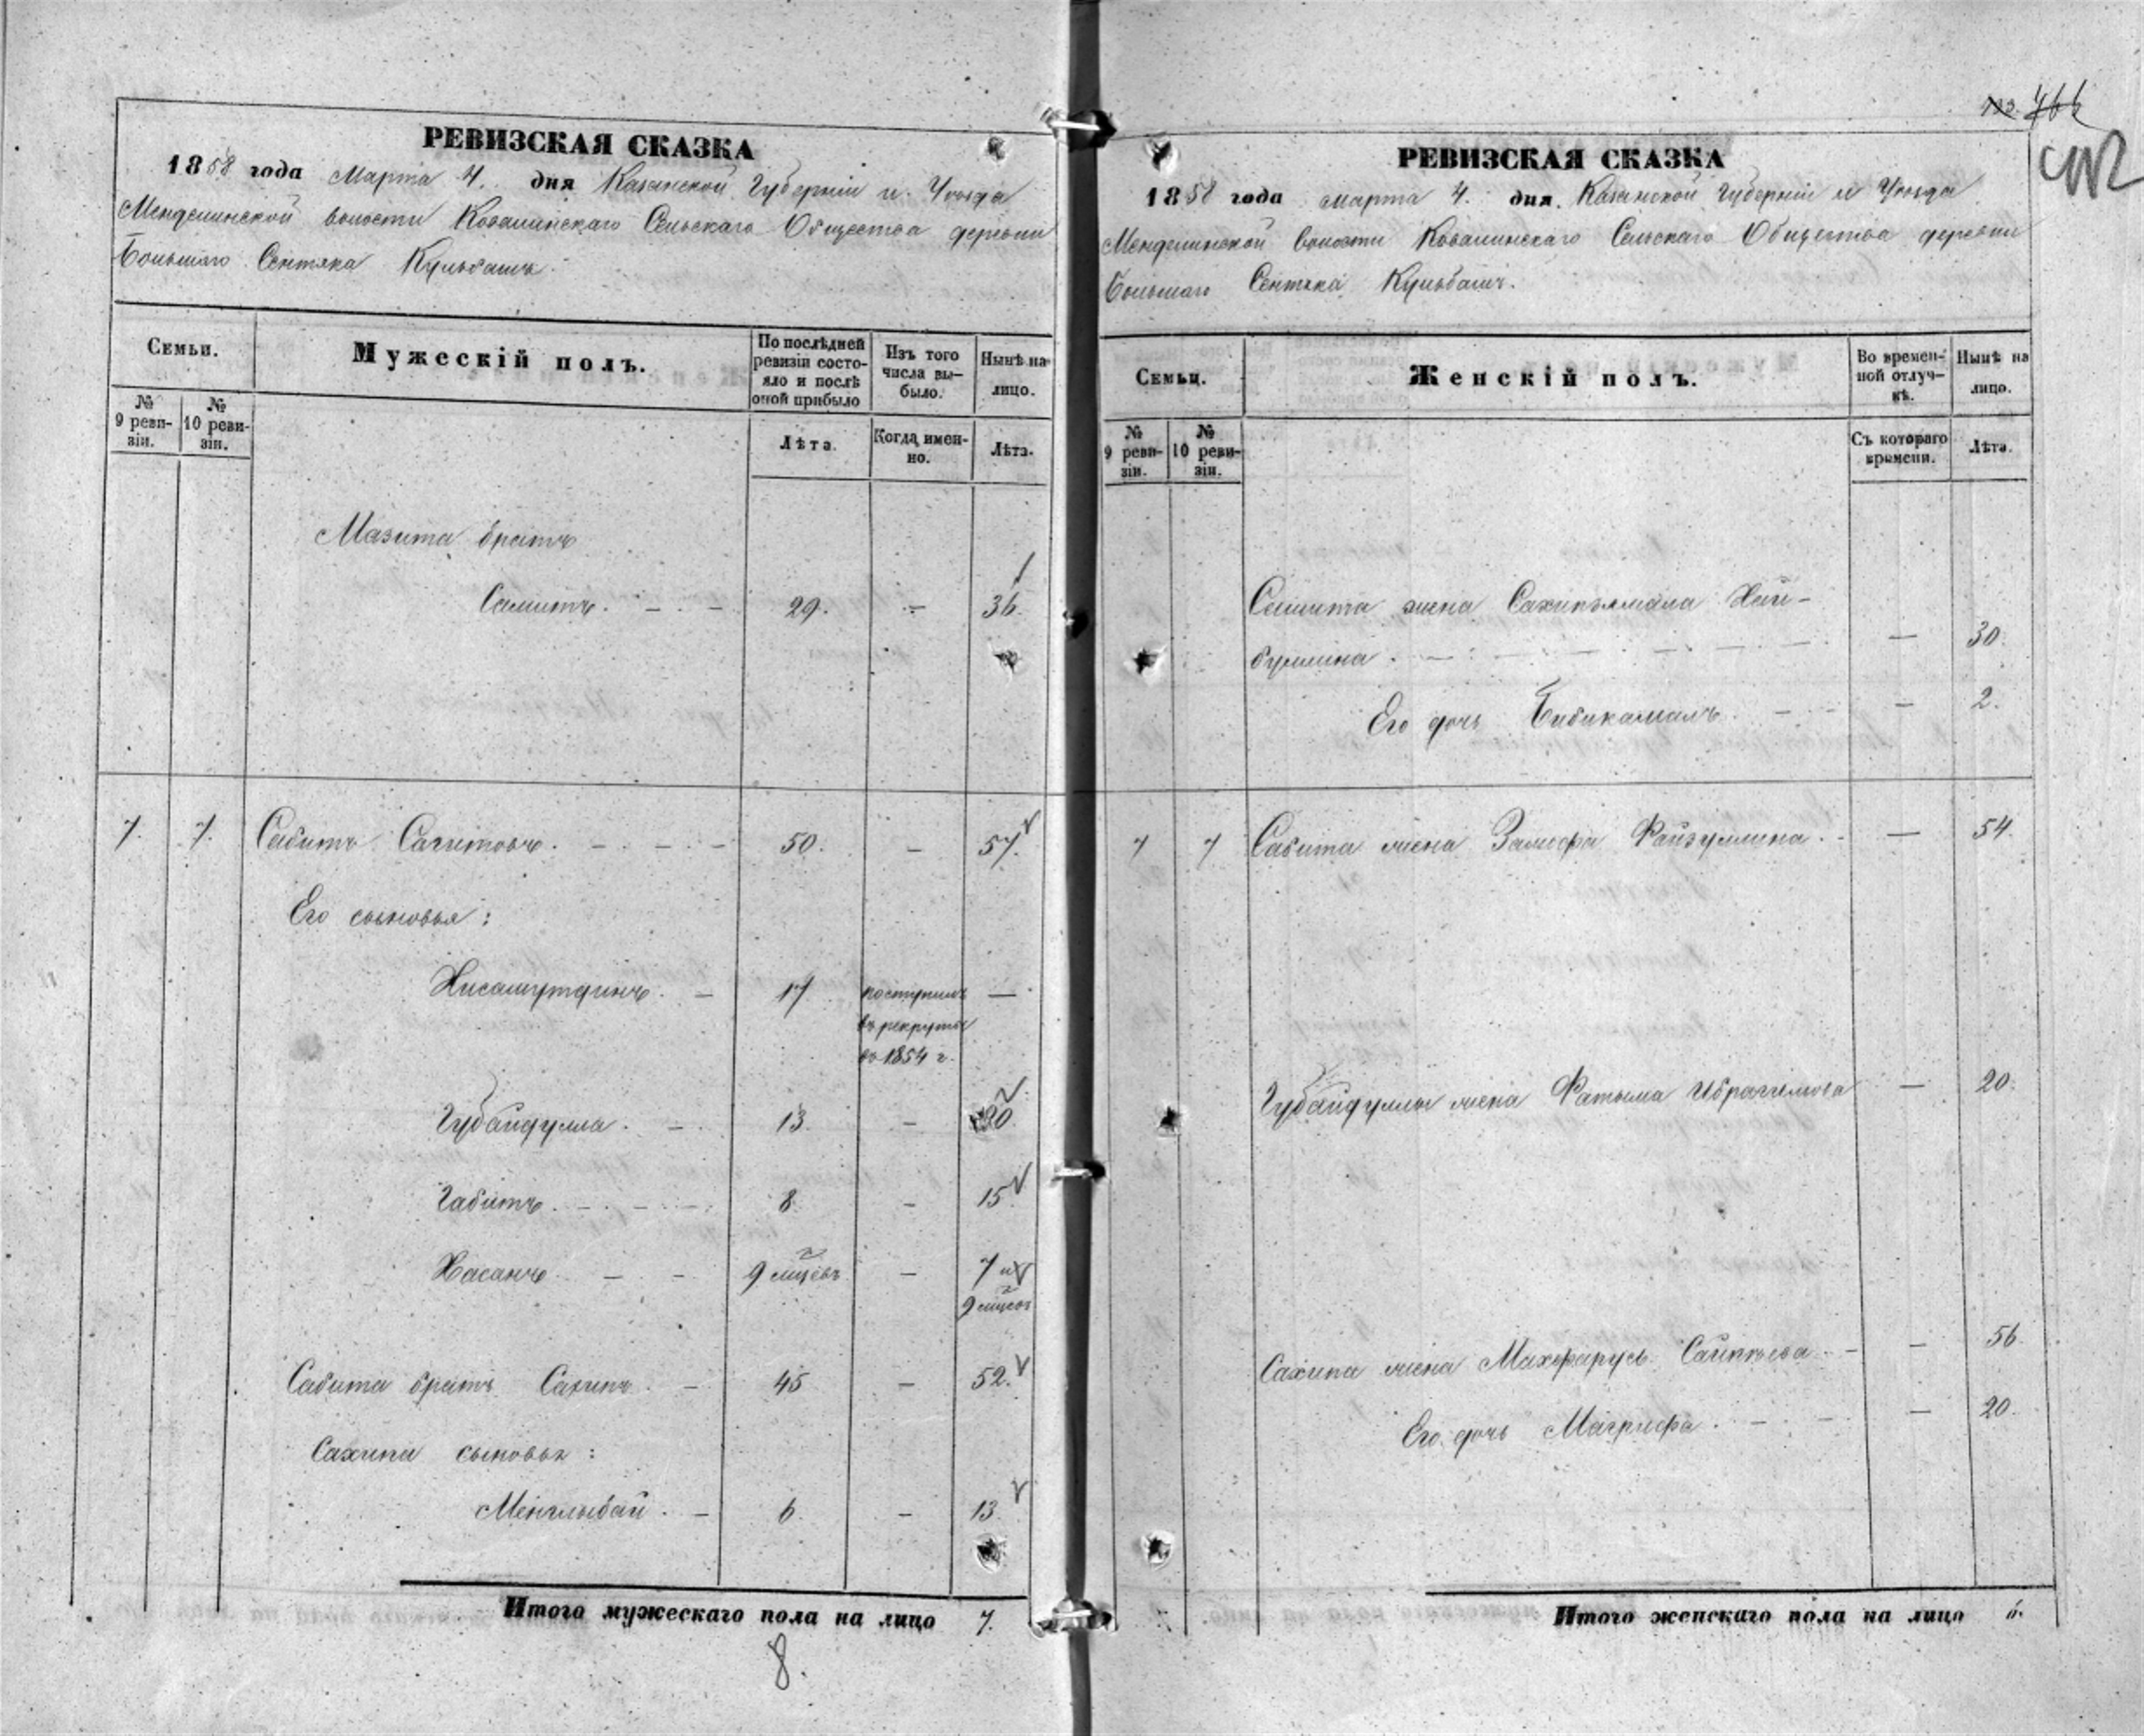 РЕВИЗСКАЯ СКАЗКА
1858 года Марта 4. дня Казанской Губерніи и Уѣзда
Менделинской волости Ковалинскаго Сельскаго Общества деревни
Большаго Сентяка Кульбашъ.
Семьи.
Мужескій полъ.
По послѣдней ревизіи состояло и послѣ оной прибыло
Изъ того числа выбыло.
Нынѣ на лицо.
№ 9 ревизіи.
№ 10 ревизіи.
Лѣта.
Когда имен-
но.
Лѣта.
Мазита братъ
Самитъ. — . — 29. — 36.
7. 7. Сабитъ Сагитовъ. — . — . — 50. — 57.
Его сыновья:
Хисамутдинъ. — 17 поступилъ —
въ рекруты
въ 1854 г.
Губайдулла. — 13. — 20.
Габитъ. — . — . — 8. — 15.
Хасанъ. — — 9 мцевъ — 7 и
9 мцевъ
Сабита братъ Сахипъ. — 45 — 52.
Сахипа сыновья:
Менглыбай. — 6. — 13.
Итого мужескаго пола на лицо 7.
8.
466
РЕВИЗСКАЯ СКАЗКА
1858 года марта 4. дня. Казанской Губерніи и Уѣзда
Менделинской волости Ковалинскаго Сельскаго Общества деревни
Большаго Сентяка Кульбашъ.
Семьи.
Женскій полъ.
Во времен-
ной отлуч-
кѣ.
Нынѣ на
лицо.
№ 9 ревизіи.
№ 10 ревизіи.
Съ котораго
времени.
Лѣта.
Самита жена Сахипзямала Хай-
буллина. — . — . — — 30.
Его дочь Бибикамалъ. — . — — 2.
7 7 Сабита жена Файзуллина. — — 54.
Губайдуллы жена Фатыма Ибрагимова — 20.
Сахипа жена — — 56
Его дочь Магрифа. — . — — 20.
Итого женскаго пола на лицо 6.